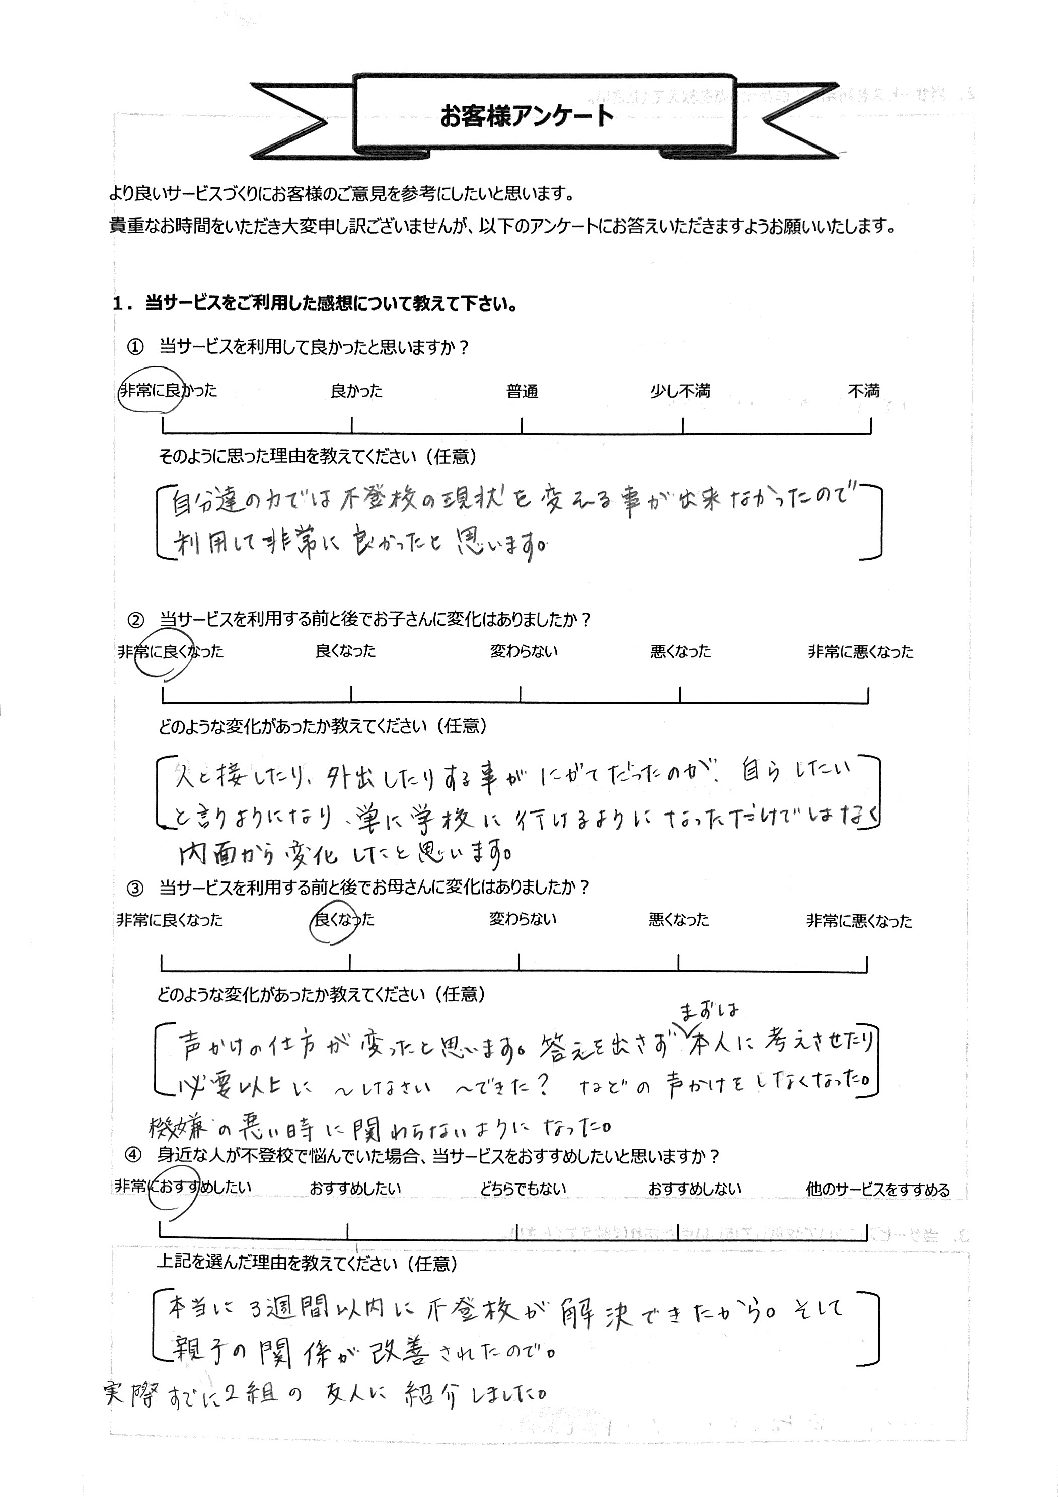 お客様アンケート
より良いサービスづくりにお客様のご意見を参考にしたいと思います。
貴重なお時間をいただき大変申し訳ございませんが、以下のアンケートにお答えいただきますようお願いいたします。
1．当サービスをご利用した感想について教えて下さい。
① 当サービスを利用して良かったと思いますか？
非常に良かった 良かった 普通 少し不満 不満
そのように思った理由を教えてください（任意）
自分達の力では不登校の現状を変える事が出来なかったので
利用して非常に良かったと思います。
② 当サービスを利用する前と後でお子さんに変化はありましたか？
非常に良くなった 良くなった 変わらない 悪くなった 非常に悪くなった
どのような変化があったか教えてください（任意）
人と接したり、外出したりする事がにがてだったのが、自らしたい
と言うようになり、単に学校に行けるようになっただけではなく
内面から変化したと思います。
③ 当サービスを利用する前と後でお母さんに変化はありましたか？
非常に良くなった 良くなった 変わらない 悪くなった 非常に悪くなった
どのような変化があったか教えてください（任意）
まずは
声かけの仕方が変ったと思います。答えを出さず本人に考えさせたり
必要以上に 〜しなさい 〜できた？ などの声かけをしなくなった。
機嫌の悪い時に関わらないようになった。
④ 身近な人が不登校で悩んでいた場合、当サービスをおすすめしたいと思いますか？
非常におすすめしたい おすすめしたい どちらでもない おすすめしない 他のサービスをすすめる
上記を選んだ理由を教えてください（任意）
本当に3週間以内に不登校が解決できたから。そして
親子の関係が改善されたので。
実際すでに2組の友人に紹介しました。